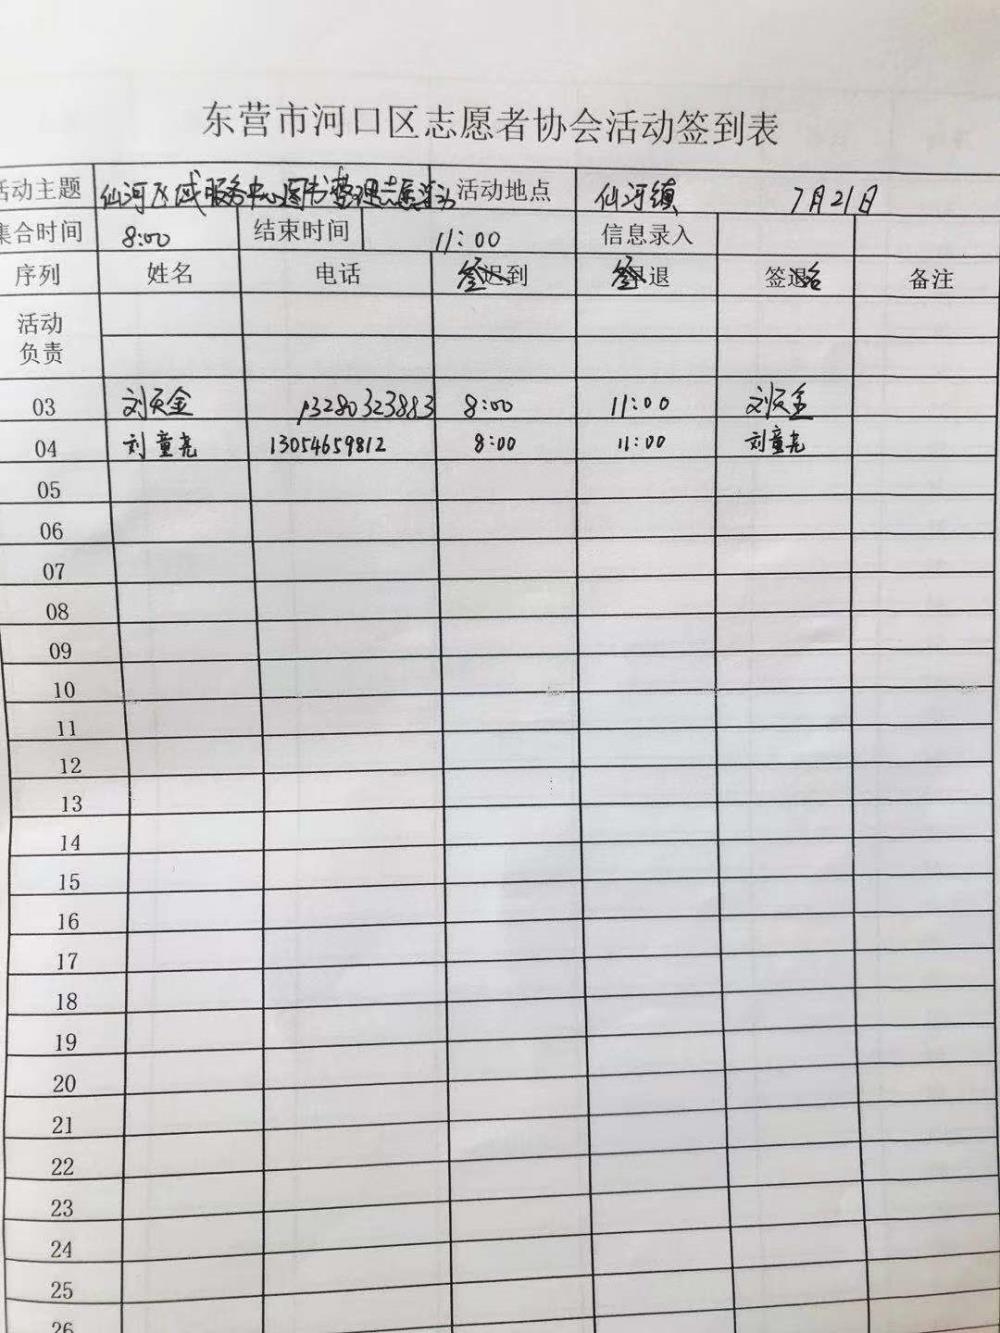 东营市河口区志愿者协会活动签到表
活动主题 仙河区域服务中心图书整理志愿活动 活动地点 仙河镇 7月21日
集合时间 8:00 结束时间 11:00 信息录入
序列 姓名 电话 签到 签退 签名 备注
活动
负责
03 刘天金 13280323883 8:00 11:00 刘天金
04 刘童尧 13054659812 8:00 11:00 刘童尧
05
06
07
08
09
10
11
12
13
14
15
16
17
18
19
20
21
22
23
24
25
26